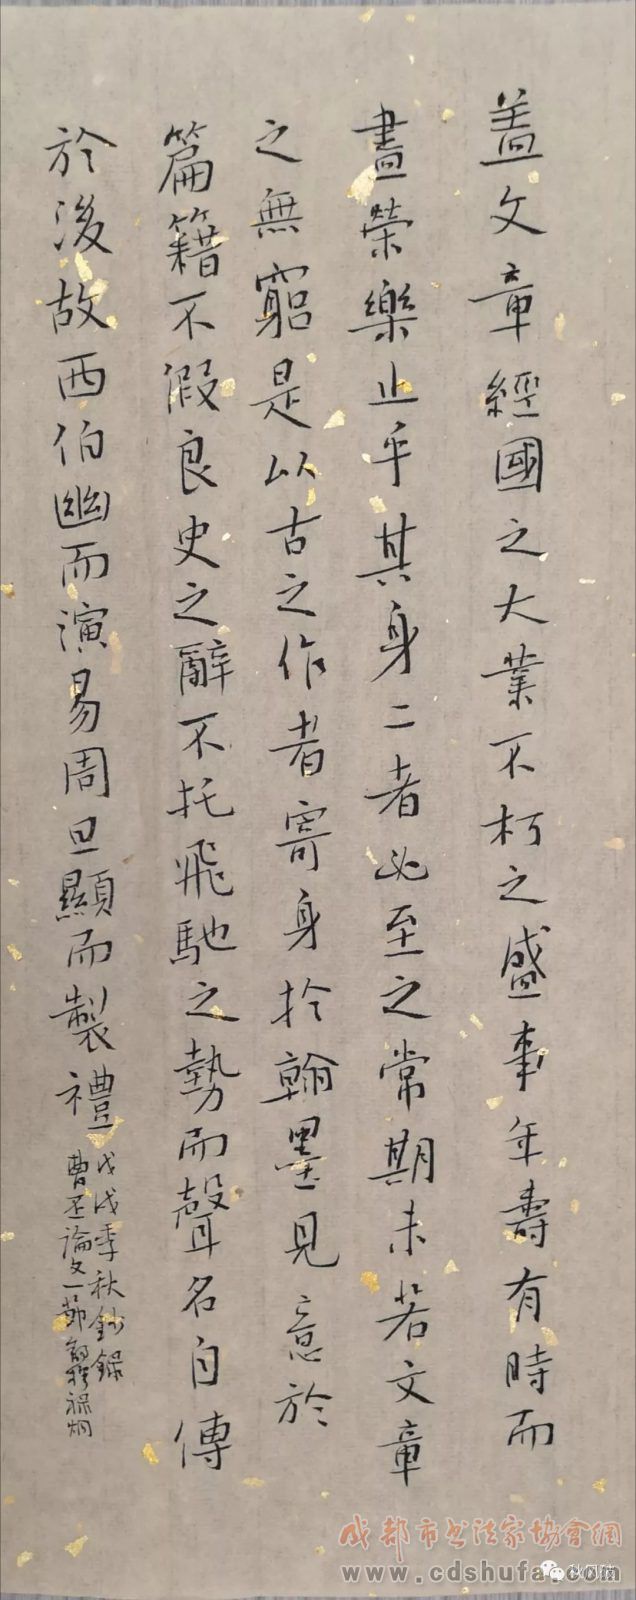 蓋文章經國之大業不朽之盛事年壽有時而
盡榮樂止乎其身二者必至之常期未若文章
之無窮是以古之作者寄身於翰墨見意於
篇籍不假良史之辭不托飛馳之勢而聲名自傳
於後故西伯幽而演易周旦顯而製禮
戊戌季秋鈔錄
曹丕論文一節
成都市书法家協會網
www.cdshufa.com